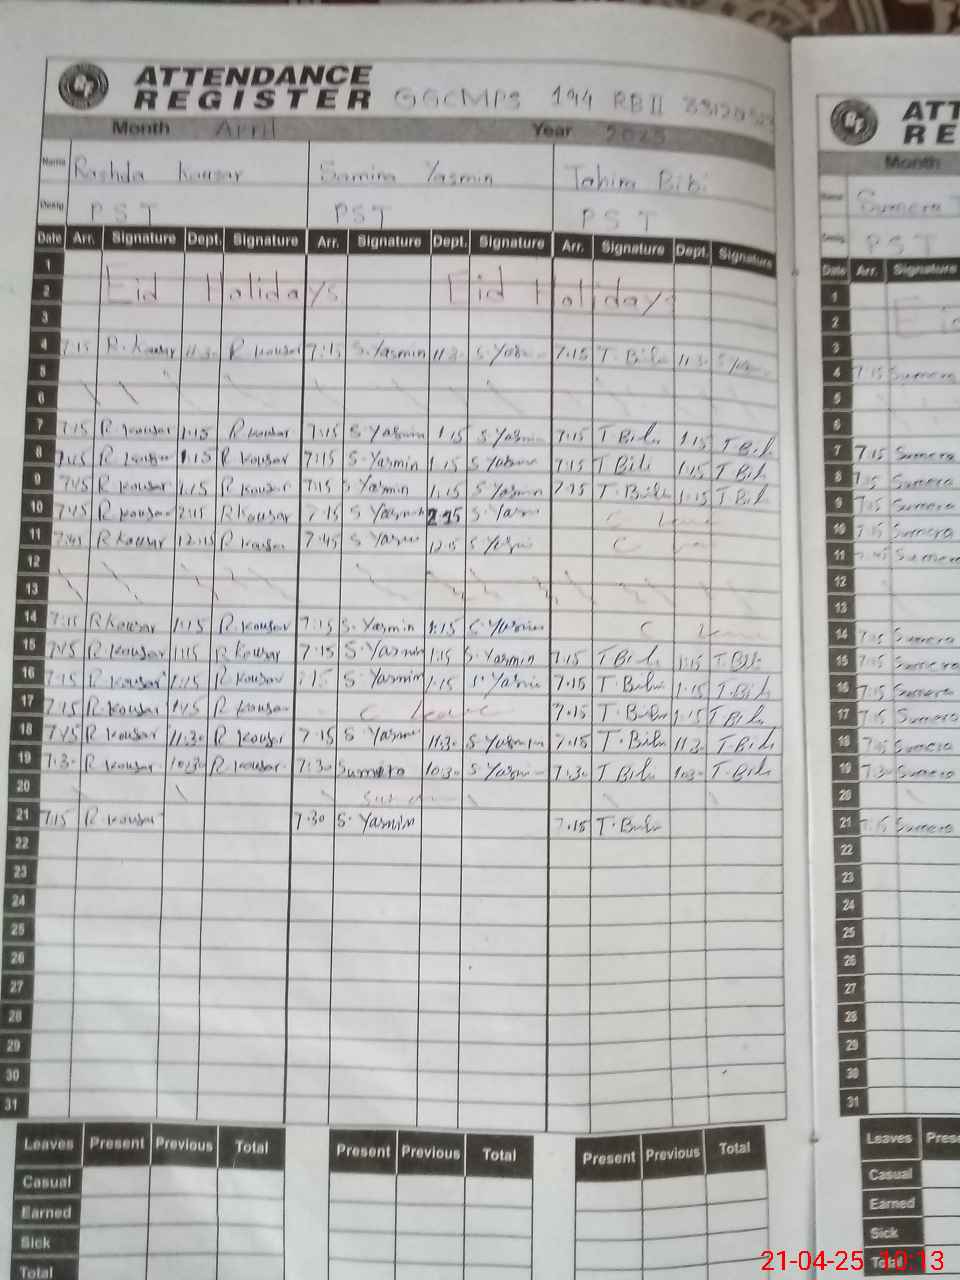 ATTENDANCE
REGISTER GGCMPS 194 RB II
Month April Year 2025
Name Rashda Kousar Samina Yasmin Tahira Bibi
Desig. PST PST PST
Date Arr. Signature Dept. Signature Arr. Signature Dept. Signature Arr. Signature Dept. Signature
1
2 Eid Holidays Eid Holidays
3
4 7:15 R. Kousar 11:30 R Kousar 7:15 S. Yasmin 11:30 S. Yasmin 7:15 T Bibi 11:30
5
6
7 7:15 R Kousar 1:15 R Kousar 7:15 S Yasmin 1:15 S Yasmin 7:15 T Bibi 1:15 T Bibi
8 7:15 R Kousar 1:15 R Kousar 7:15 S. Yasmin 1.15 S Yasmin 7:15 T Bibi 1:15 T Bibi
9 7:15 R Kousar 1.15 R Kousar 7:15 S Yasmin 1.15 S Yasmin 7:15 T. Bibi 1:15 T Bibi
10 7:15 R Kousar 2:15 R Kousar 7:15 S Yasmin 2:15 S Yasmin C Leave
11 7:45 R Kousar 12:15 R Kousar 7:45 S Yasmin 12:15 S Yasmin C
12
13
14 7:15 R Kousar 1:15 R. Kousar 7:15 S. Yasmin 1:15 S. Yasmin C Leave
15 7:15 R Kousar 1:15 R Kousar 7:15 S. Yasmin 1:15 S. Yasmin 7:15 T Bibi 1:15 T. Bibi
16 7:15 R. Kousar 1:15 R. Kousar 7:15 S. Yasmin 1.15 S. Yasmin 7.15 T. Bibi 1:15 T. Bibi
17 7:15 R. Kousar 1:15 R. Kousar C Leave 7.15 T. Bibi 1.15 T Bibi
18 7:15 R Kousar 11:30 R Kousar 7:15 S Yasmin 11:30 S Yasmin 7:15 T. Bibi 11:30 T. Bibi
19 7:30 R Kousar 10:30 R. Kousar 7:30 Sumera 10:30 S Yasmin 7:30 T Bibi 10:30 T. Bibi
20 Sunday
21 7:15 R. Kousar 7.30 S. Yasmin 7.15 T. Bibi
22
23
24
25
26
27
28
29
30
31
Leaves Present Previous Total Present Previous Total Present Previous Total
Casual
Earned
Sick
Total
ATT
RE
Month
Name Sumera
Desig. PST
Date Arr. Signature
1
2 Ei
3
4 7:15 Sumera
5
6
7 7:15 Sumera
8 7:15 Sumera
9 7:15 Sumera
10 7:15 Sumera
11 7:45 Sumera
12
13
14 7:15 Sumera
15 7:15 Sumera
16 7:15 Sumera
17 7:15 Sumera
18 7:15 Sumera
19 7:30 Sumera
20
21 7:15 Sumera
22
23
24
25
26
27
28
29
30
31
Leaves Prese
Casual
Earned
Sick
Total
21-04-25 10:13